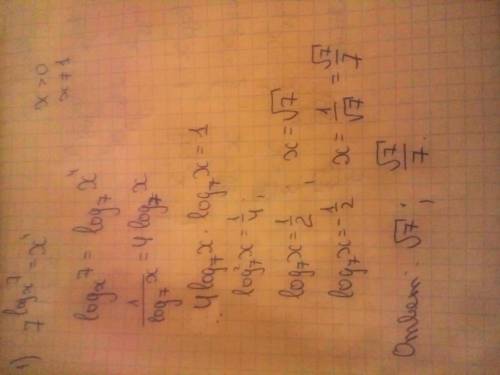 1) 7^{log_x 7} = x^4
x > 0
x ≠ 1
log_x 7 = log_7 x^4
1/(log_7 x) = 4 log_7 x
4 log_7 x · log_7 x = 1
log_7^2 x = 1/4;
log_7 x = 1/2; x = √7
log_7 x = -1/2 x = 1/√7 = √7/7
Ответ: √7; √7/7.